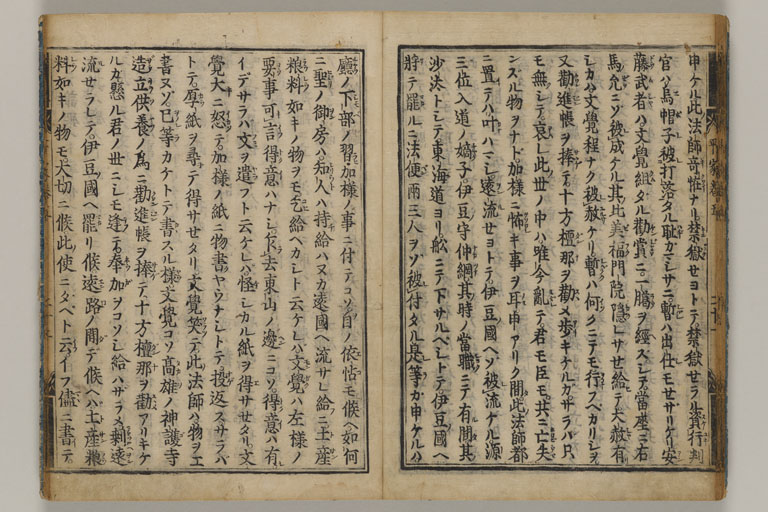 申ケル此法師奇怪ナリ禁獄セヨトテ禁獄セラル資行判
官ハ烏帽子被打落タル耻カマシサニ暫ハ出仕モせサリケリ安
藤武者ハ文覺組タル勸賞ニ一臈ヲ經スシテ當座ニ右
馬允ニソ被成ケル其比美福門院隱レサせ給テ大赦有
シカハ文覺程ナク被赦ケリ暫ハ何クニテモ行フヘカリシヲ
又勸進帳ヲ捧テ十方檀那ヲ勸メ歩キケルカサラハ只
モ無シテ哀レ此世ノ中ハ唯今亂テ君モ臣モ共ニ亡失
ンスル物ヲナト加様ニ怖キ事ヲ耳申アリク間此法師都
ニ置テハ叶ハマシ遠流せヨトテ伊豆國ヘソ被流ケル源
三位入道ノ嫡子伊豆守仲綱其時ノ當職ニテ有間其
沙汰トシテ東海道ヨリ舩ニテ下サルヘシトテ伊豆國ヘ
將テ罷ルニ法便兩三人ヲソ被付タル是等カ申ケルハ
廳ノ下部ノ習加様ノ事ニ付テコソ自ノ依怙モ候ヘ如何
ニ聖ノ御房ハ知人ハ持給ハヌカ遠國ヘ流サレ給ニ土産
粮料如キノ物ヲモ乞給ヘカシト云ケレハ文覺ハ左様ノ
要事可言得意ハナシ但去東山ノ邊ニコソ得意ハ有
イテサラハ文ヲ遣フト云ケレハ怪シカル紙ヲ得サせタリ文
覺大ニ怒テ加様ノ紙ニ物書ヤウナシトテ投返スサラハ
トテ厚紙ヲ尋テ得サせタリ文覺笑テ此法師ハ物ヲエ
書ヌソ己等カケトテ書スル様文覺コソ高雄ノ神護寺
造立供養ノ爲ニ勸進帳ヲ捧テ十方檀那ヲ勸アリキケ
ルカ懸ル君ノ世ニシモ逢テ奉加ヲコソシ給ハサラメ剰遠
流せラレテ伊豆國ヘ罷リ候遠路ノ間テ候ヘハ土産粮
料如キノ物モ大切ニ候此使ニタヘト云イフ儘ニ書テ